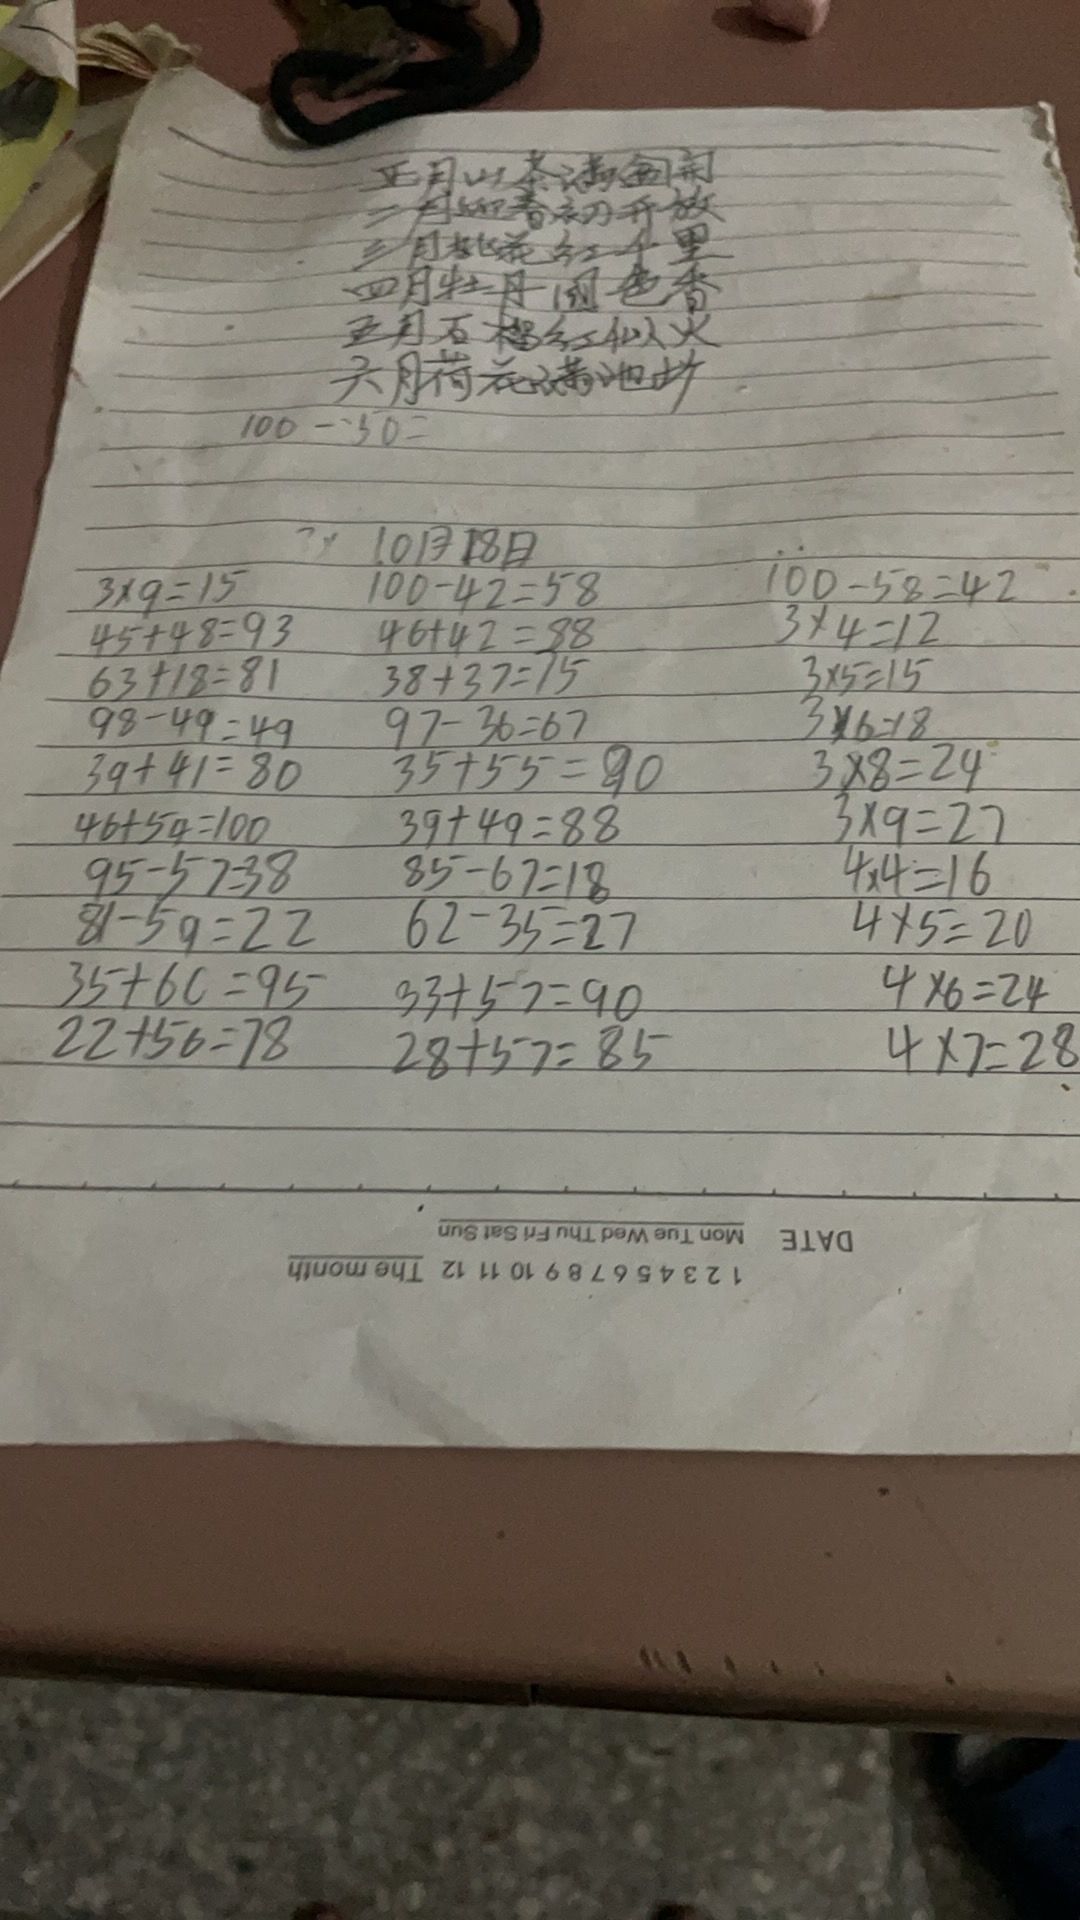 正月山茶满盆开
二月迎春初开放
三月桃花红千里
四月牡丹国色香
五月石榴红似火
六月荷花满池
100-50=
10月18日
3×9=15 100-42=58 100-58=42
45+48=93 46+42=88 3×4=12
63+18=81 38+37=75 3×5=15
98-49=49 97-36=67 3×6=18
39+41=80 35+55=90 3×8=24
46+54=100 39+49=88 3×9=27
95-57=38 85-67=18 4×4=16
81-59=22 62-35=27 4×5=20
35+60=95 33+57=90 4×6=24
22+56=78 28+57=85 4×7=28
DATE Mon Tue Wed Thu Fri Sat Sun
1 2 3 4 5 6 7 8 9 10 11 12 The month